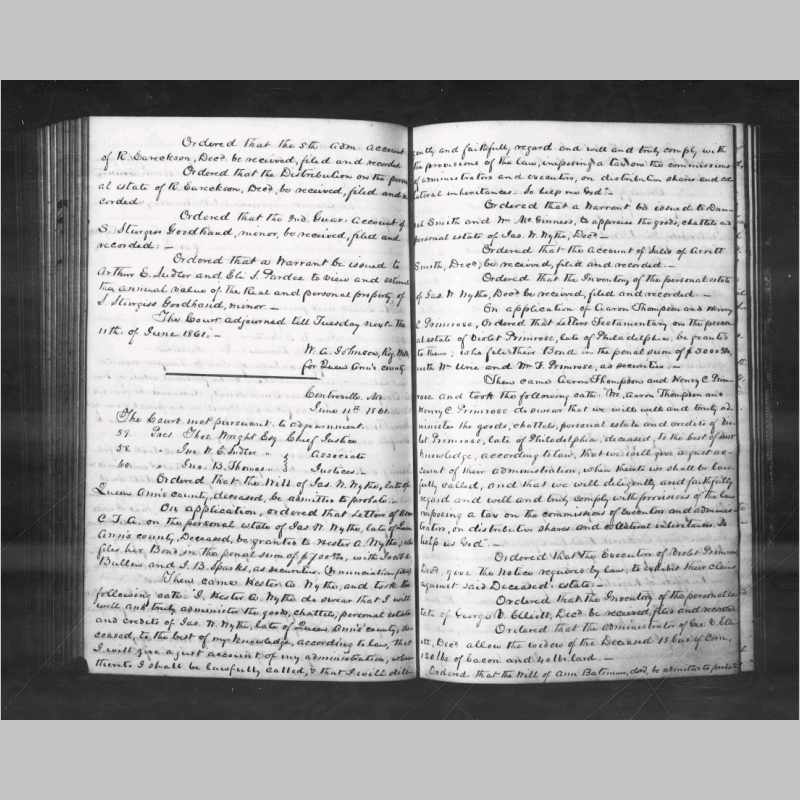 Ordered that the 5th adm. account
of R. Eareckson, Decd. be received, filed and recorded
Ordered that the Distribution on the person
al estate of R. Eareckson, Decd, be received, filed and re
corded
Ordered that the Ind. Guar. Account of
S. Sturgess Goodhand, minor, be received, filed and
recorded. —
Ordered that a Warrant be issued to
Arthur E. Sudler and Eli S. Pardee to view and estimate
the annual value of the Real and personal property of
S. Sturgess Goodhand, minor —
The Court adjourned till Tuesday next the
11th. of June 1861. —
W. A. Johnson, Reg. Wills
for Queen Ann's county
Centreville, Md.
June 11th 1861
The Court met pursuant to adjournment
59. Pres. Thos. Wright Esq. Chief Justice
58. " Jno. W. E. Sudler " } Associate
60. " Jno. B. Thomas " } Justices. —
Ordered that the Will of Jas. N. Wythe, late of
Queen Ann's county, deceased, be admitted to probate. —
On application, ordered that Letters of Adm
C. T. A. on the personal estate of Jas. N. Wythe, late of Queen
Ann's county, Deceased, be granted to Hester A. Wythe, she
files her Bond in the penal sum of $700, with
Bullen and J. B. Sparks, as securities. (Renunciation filed)
Then came Hester A. Wythe, and took the
following oath: I, Hester A. Wythe do swear that I will
well and truly administer the goods, chattels, personal estate
and credits of Jas. N. Wythe, late of Queen Ann's county, de
ceased, to the best of my knowledge, according to law, that
I will give a just account of my administration, when
thereto I shall be lawfully called, & that I will dili-
gently and faithfully, regard and will and truly comply with
the provisions of the law, imposing a tax on the commissions
of administrators and executors, on distributive shares and col
lateral inheritances. So help me God. —
Ordered that a Warrant be issued to Dan
iel Smith and Wm. McGinness, to appraise the goods, chattels and
personal estate of Jas. N. Wythe, Decd —
Ordered that the Account of Sales of Arrett
Smith, Decd, be received, filed and recorded. —
Ordered that the Inventory of the personal estate
of Jas. N. Wythe, Decd be received, filed and recorded —
On application of Aaron Thompson and Henry
C. Primrose, Ordered that letters Testamentary on the person
al estate of Violet Primrose, late of Philadelphia, be granted
to them; who files their Bond in the penal sum of $3000,
with Wm. and Wm. F. Primrose, as securities. —
Then came Aaron Thompson and Henry C. Prim-
rose and took the following oath. We, Aaron Thompson and
Henry C. Primrose do swear that we will well and truly ad-
minister the goods, chattels, personal estate and credits of Vio-
let Primrose, late of Philadelphia, deceased, to the best of our
knowledge, according to law, that we will give a just ac-
count of their administration, when thereto we shall be law-
fully called, and that we will diligently and faithfully
regard and will and truly comply with provisions of the law
imposing a tax on the commissions of executors and adminis-
trators, on distributive shares and collateral inheritances. So
help us God —
Ordered that the Executors of Violet Primrose
Decd, give the Notice required by law, to exhibit their claims
against said Deceased's estate. —
Ordered that the Inventory of the personal es
tate of George V. Elliott, Decd be received, filed and recorded
Ordered that the administrator of Geo. V. Elli
ott, Decd allow the widow of the Deceased 15 bus. of Corn,
120 lbs of bacon and 40 lbs lard. —
Ordered that the Will of Ann Bateman, decd, be admitted to probate